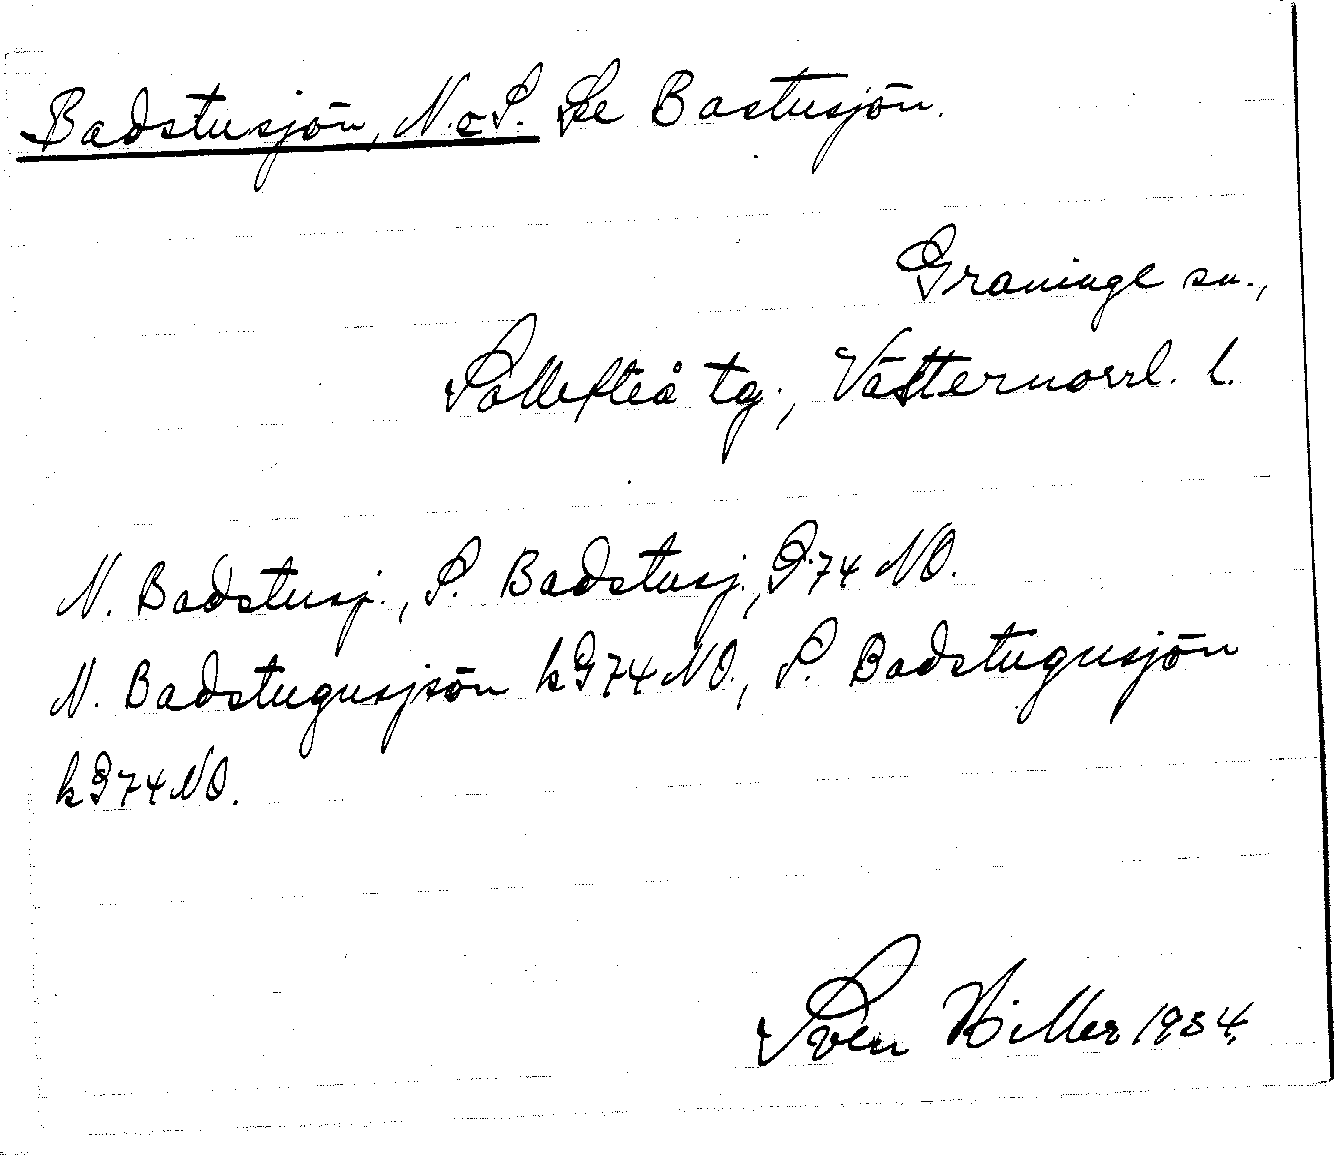 Badstusjön, N. o S. Se Bastusjön.
Graninge sn.,
Sollefteå tg., Västernorrl. l.
N. Badstusj., S. Badstusj., G.74 NO.
N. Badstugusjsön kG74 NO., S. Badstugusjön
kG74 NO.
Sven Hiller 1934.